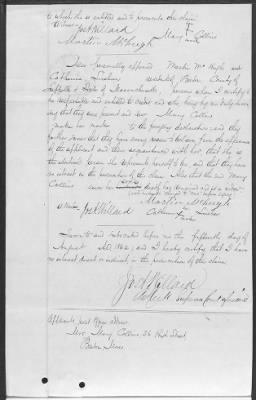 to which she is entitled and to prosecute the claim
Witness
Jos A Willard
Mary Collins
Martin McHugh
Also personally appeared Martin McHugh and
Catharine residents Boston County of
Suffolk & State of Massachusetts, persons whom I certify to
be respectable and entitled to credit and who being by me duly
sworn say that they were present and saw Mary Collins
make her mark to the foregoing declaration and they
further swear that they have every reason to believe from the appearance
of the applicant and their acquaintance with her that she is
the identical person she represents herself to be, and that they have
no interest in the prosecution of this claim. Also that the said Mary
Collins
Martin McHugh
Witness Jos A Willard
Catharine
her mark
Sworn to and subscribed before me this fifteenth day of
August AD 1862; and I hereby certify that I have
no interest direct or indirect, in the prosecution of this claim
Jos A Willard
Clerk
Applicants Post Office address
Mrs Mary Collins, 36 High Street,
Boston Mass